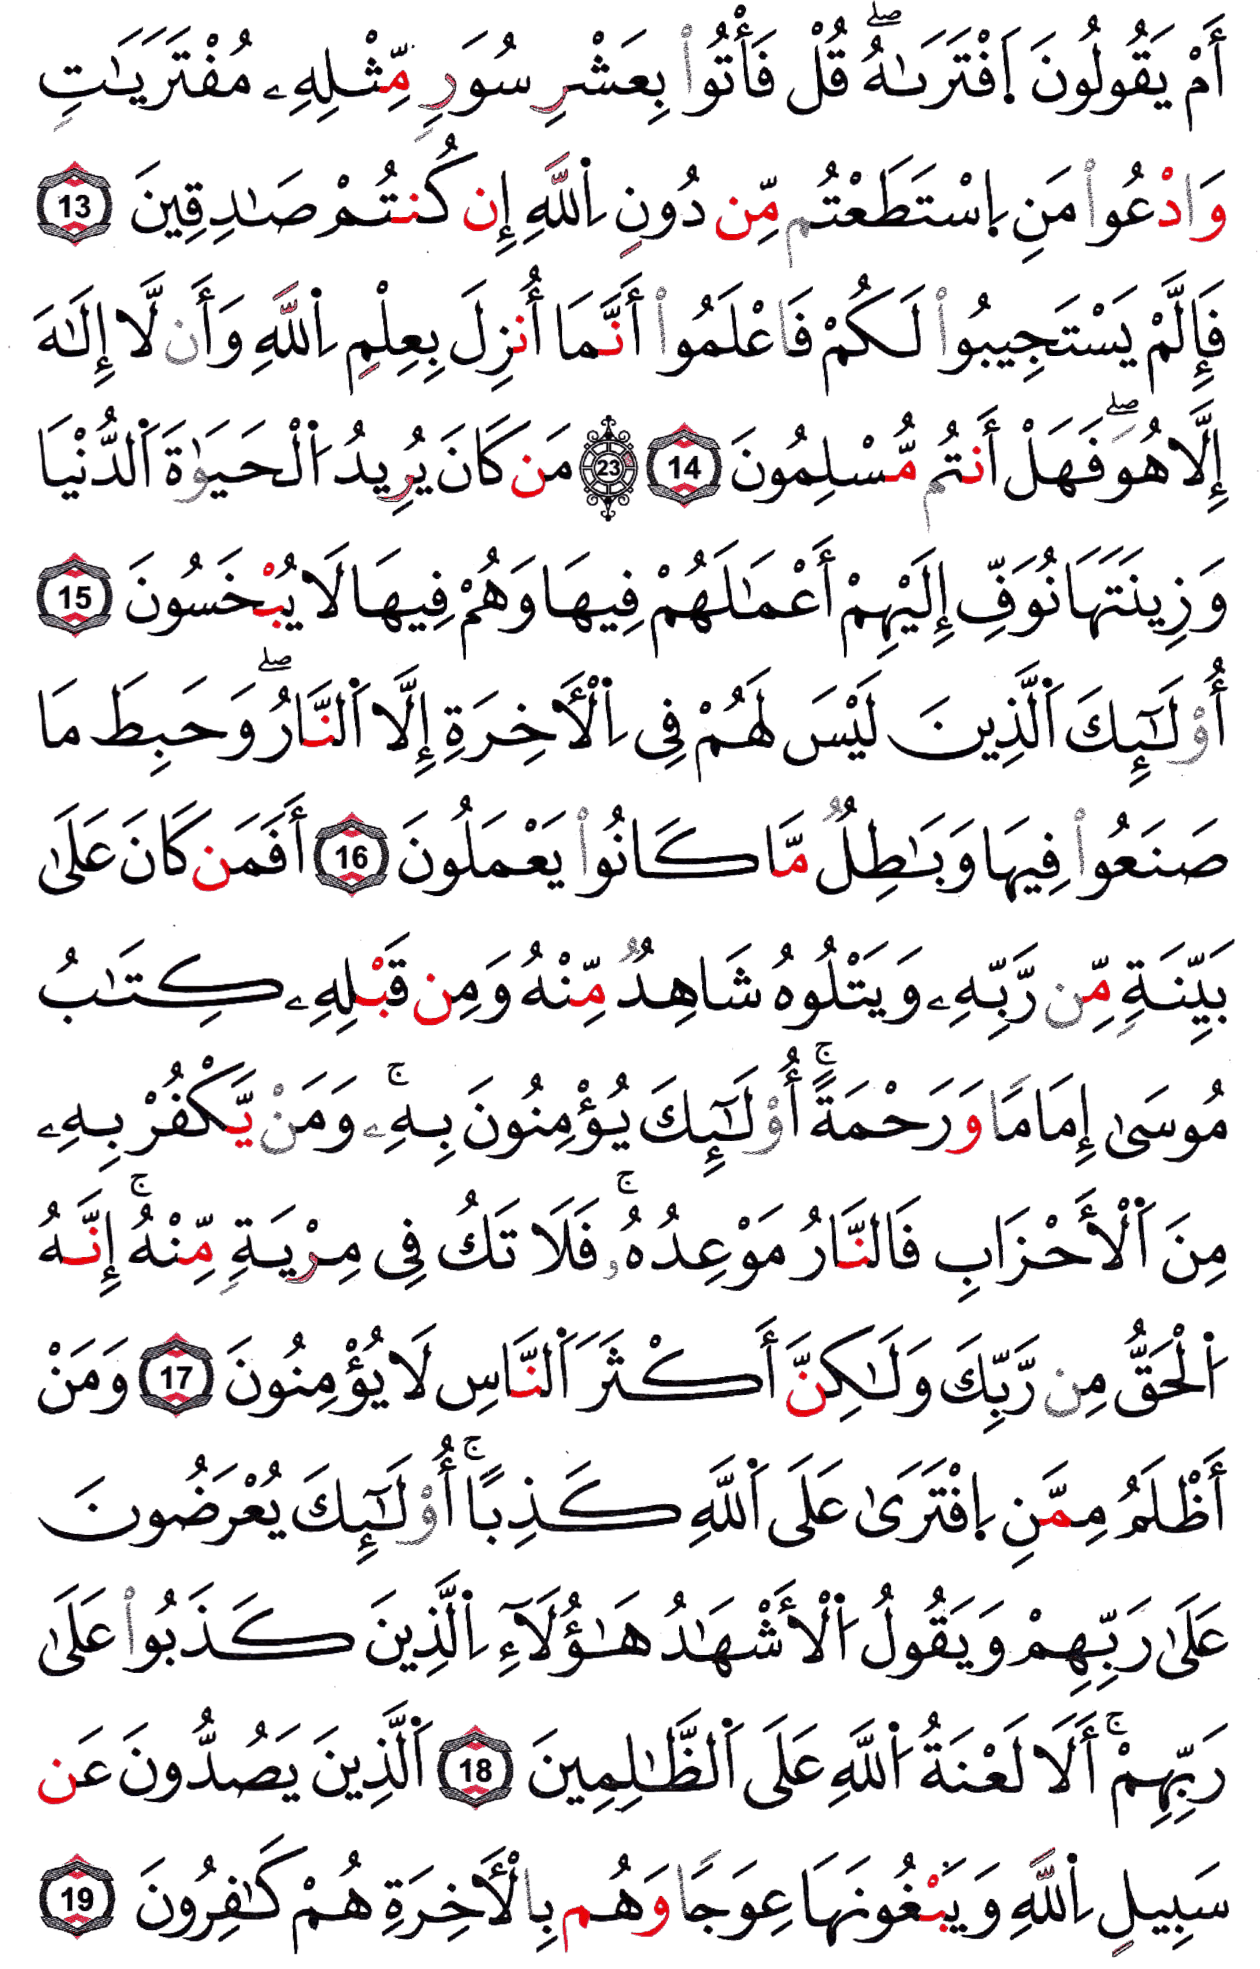 أَمْ يَقُولُونَ اَفْتَرَىٰهُۖ قُلْ فَأْتُواْ بِعَشْرِ سُوَرٍ مِّثْلِهِۦ مُفْتَرَيَٰتٍ
وَادْعُواْ مَنِ اِسْتَطَعْتُم مِّن دُونِ اِللَّهِ إِن كُنتُمْ صَٰدِقِينَ 13
فَإِلَّمْ يَسْتَجِيبُواْ لَكُمْ فَاعْلَمُواْ أَنَّمَا أُنزِلَ بِعِلْمِ اِللَّهِ وَأَن لَّا إِلَٰهَ
إِلَّا هُوَۖ فَهَلْ أَنتُم مُّسْلِمُونَ 14 23 مَن كَانَ يُرِيدُ اَلْحَيَوٰةَ اَلدُّنْيَا
وَزِينَتَهَا نُوَفِّ إِلَيْهِمْ أَعْمَٰلَهُمْ فِيهَا وَهُمْ فِيهَا لَا يُبْخَسُونَ 15
أُوْلَٰٓئِكَ اَلَّذِينَ لَيْسَ لَهُمْ فِى اِلْأَخِرَةِ إِلَّا اَلنَّارُۖ وَحَبِطَ مَا
صَنَعُواْ فِيهَا وَبَٰطِلٌ مَّا كَانُواْ يَعْمَلُونَ 16 أَفَمَن كَانَ عَلَىٰ
بَيِّنَةٍ مِّن رَّبِّهِۦ وَيَتْلُوهُ شَاهِدٌ مِّنْهُ وَمِن قَبْلِهِۦ كِتَٰبُ
مُوسَىٰ إِمَامًا وَرَحْمَةًۚ أُوْلَٰٓئِكَ يُؤْمِنُونَ بِهِۦۚ وَمَنْ يَّكْفُرْ بِهِۦ
مِنَ اَلْأَحْزَابِ فَالنَّارُ مَوْعِدُهُۥۚ فَلَا تَكُ فِى مِرْيَةٍ مِّنْهُۚ إِنَّهُ
اُلْحَقُّ مِن رَّبِّكَ وَلَٰكِنَّ أَكْثَرَ اَلنَّاسِ لَا يُؤْمِنُونَ 17 وَمَنْ
أَظْلَمُ مِمَّنِ اِفْتَرَىٰ عَلَى اَللَّهِ كَذِبًاۚ أُوْلَٰٓئِكَ يُعْرَضُونَ
عَلَىٰ رَبِّهِمْ وَيَقُولُ اُلْأَشْهَٰدُ هَٰؤُلَآءِ اِلَّذِينَ كَذَبُواْ عَلَىٰ
رَبِّهِمْۚ أَلَا لَعْنَةُ اُللَّهِ عَلَى اَلظَّٰلِمِينَ 18 اَلَّذِينَ يَصُدُّونَ عَن
سَبِيلِ اِللَّهِ وَيَبْغُونَهَا عِوَجًا وَهُم بِالْأَخِرَةِ هُمْ كَٰفِرُونَ 19